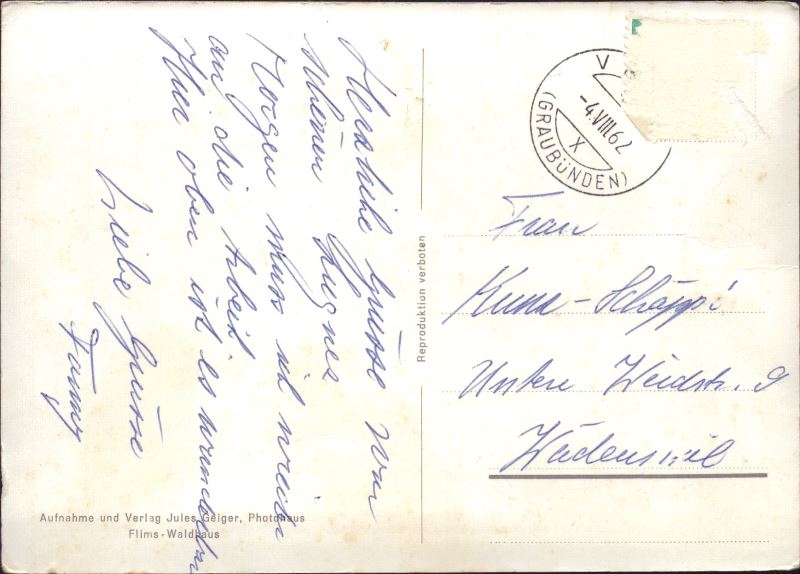 Herzliche Grüsse von
schönen
Morgen muss ich wieder
an die Arbeit.
Hier oben ist es
Liebe Grüsse
Fanny
Aufnahme und Verlag Jules Geiger, Photohaus
Flims-Waldhaus
Reproduktion verboten
-4.VIII.62
X
(GRAUBÜNDEN)
Frau
Kunz-Schäppi
Untere Weidstr. 9
Wädenswil